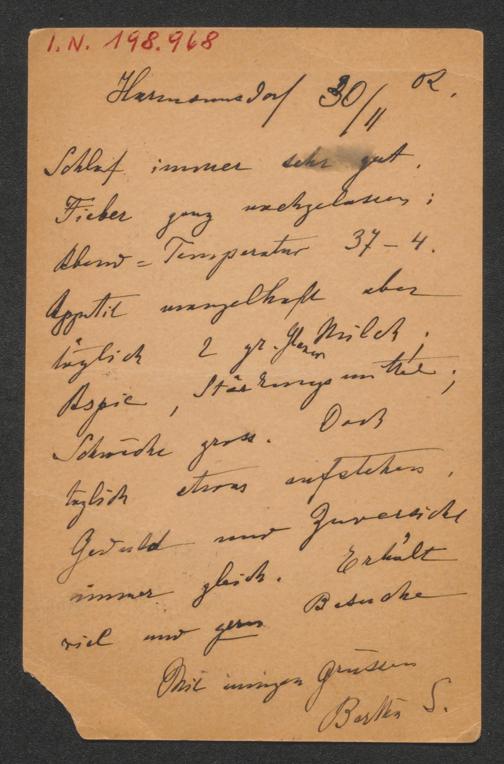 I.N. 198.968
Harmannsdorf 30/11 02.
Schlaf immer sehr gut.
Fieber ganz nachgelassen;
Abend-Temperatur 37-4.
Appetit mangelhaft aber
täglich 2 gr. Glas Milch,
Aspic, Stärkungsmittel;
Schwäche gross. Doch
täglich etwas aufstehen.
Geduld und Zuversicht
immer gleich. Erhält
viel und gern Besuche
Mit innigen Grüssen
Bertha S.